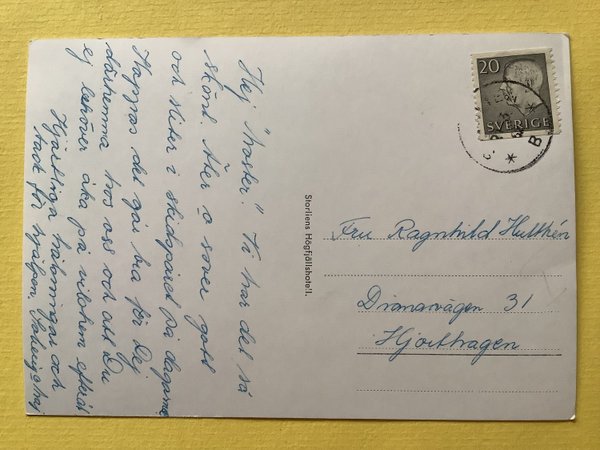 Hej "Moster". Vi har det så
skönt. Äter o sover gott
och sliter i skidspåret på dagarna
Hoppas det går bra för Dej
därhemma hos oss och att Du
ej behöver åka på vilohem efteråt
Hjärtliga hälsningar och
tack för hjälpen.
Storliens Högfjällshotell.
20
SVERIGE
Fru Ragnhild Hulthén
Dianavägen 31
Hjorthagen